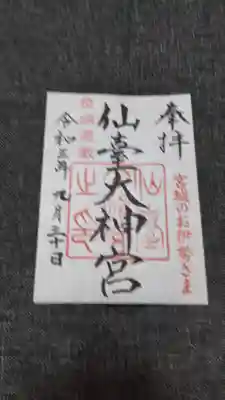 奉拝
宮城のお伊勢さま
仙臺大神宮
令和三年九月三十日